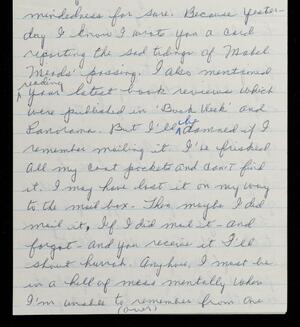 mindedness for sure. Because yester-
day I know I wrote you a card
reporting the sad tidings of Mabel
Meads' passing. I also mentioned
reading
your latest book reviews which
were published in 'Book Week' and
Panorama. But I'll be damned if I
remember mailing it. I've frisked
all my coat pockets and can't find
it. I may have lost it on my way
to the mail box. Then maybe I did
mail it. If I did mail it - and
forgot - and you receive it I'll
shout hurrah. Anyhow, I must be
in a hell of mess mentally when
I'm unable to remember from one
(over)